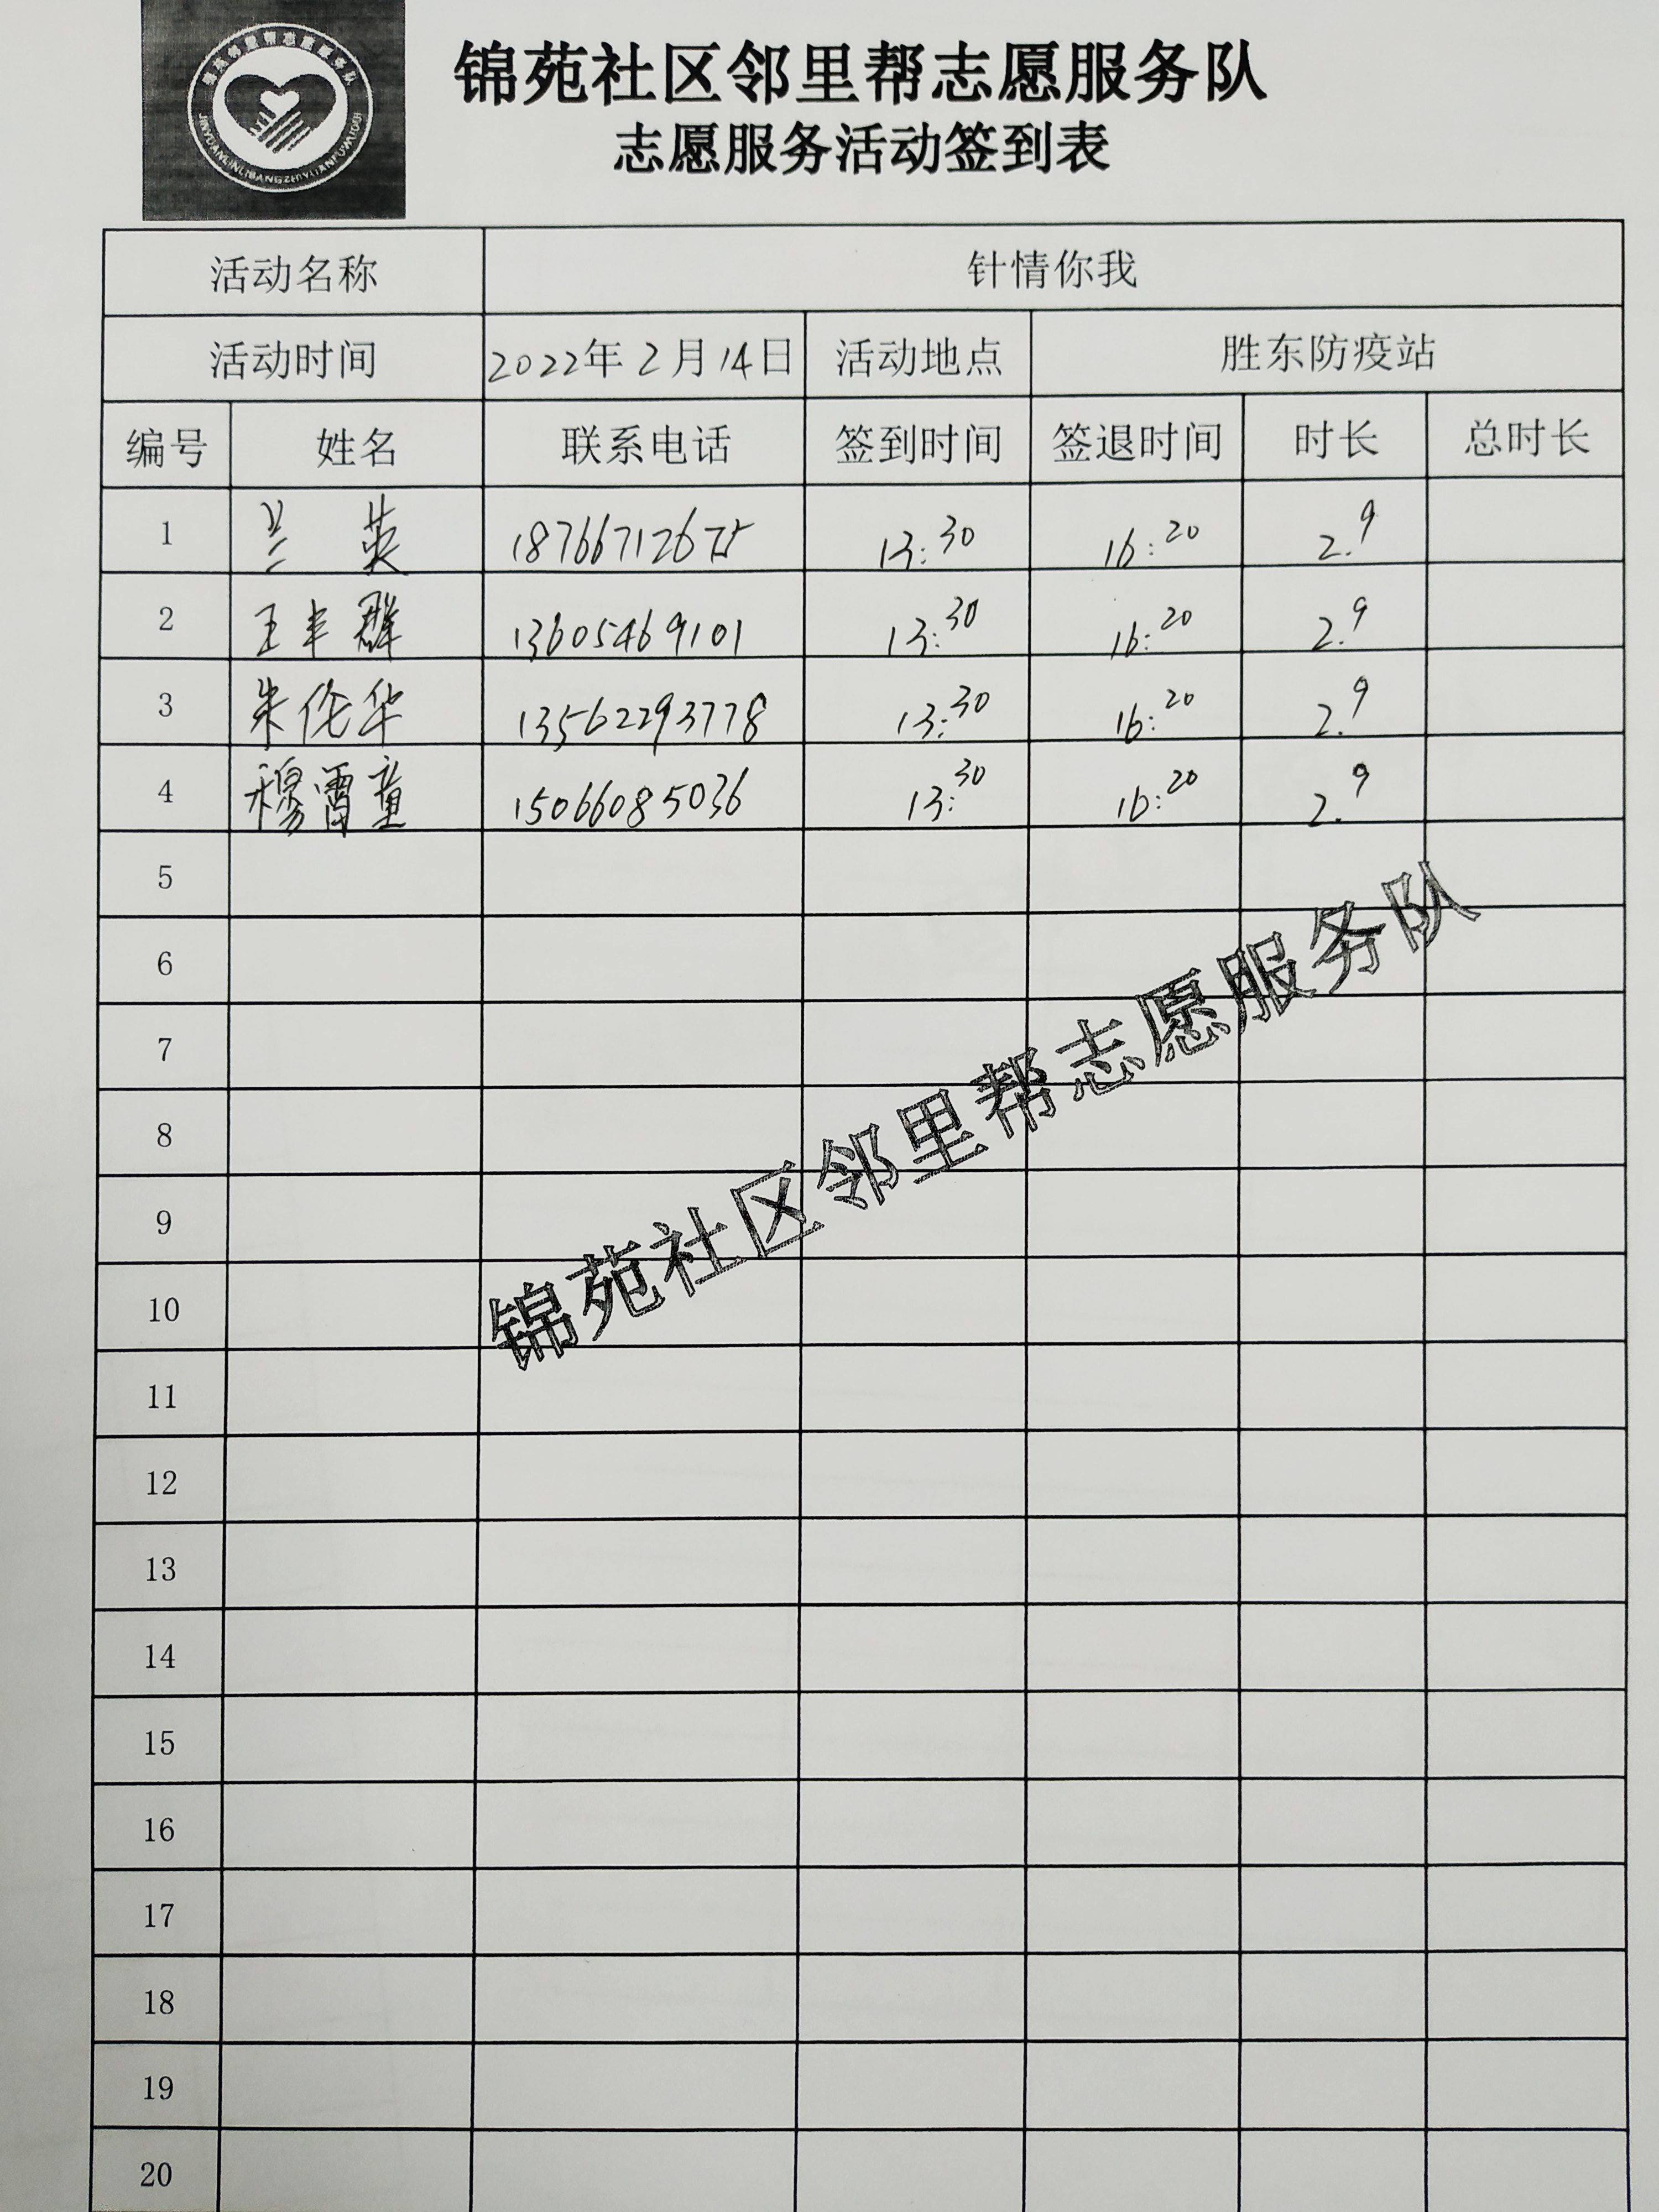 锦苑社区邻里帮志愿服务队
志愿服务活动签到表
活动名称 针情你我
活动时间 2022年2月14日 活动地点 胜东防疫站
编号 姓名 联系电话 签到时间 签退时间 时长 总时长
1 兰英 187667126 13:30 16:20 2.9
2 王丰群 13605469101 13:30 16:20 2.9
3 朱伦华 13562293778 13:30 16:20 2.9
4 穆雷童 15066085036 13:30 16:20 2.9
5
6
7
8
9
10
11
12
13
14
15
16
17
18
19
20
锦苑社区邻里帮志愿服务队